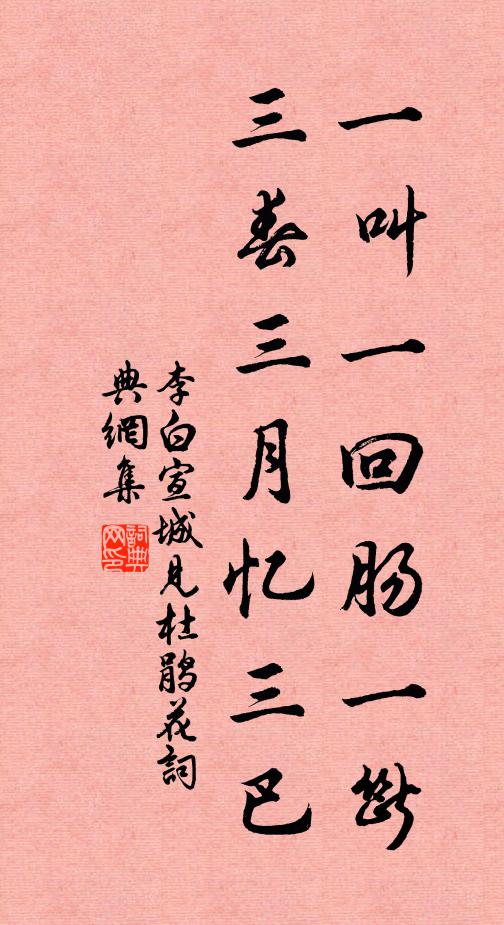 一叫一回肠一斷
三春三月忆三巴
李白宣城見杜鹃花詞
典網集
詞典
网印